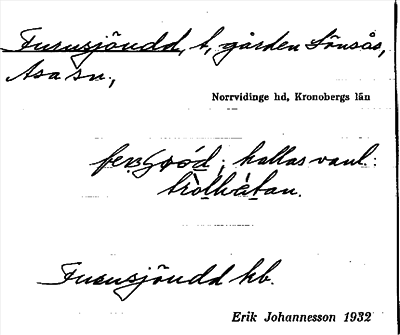 Furusjöudd, t, gården Lönsås,
Asa sn,
Norrvidinge hd, Kronobergs län
kallas vanl:
tròlhὲtan.
Furusjöudd kb.
Erik Johannesson 1932